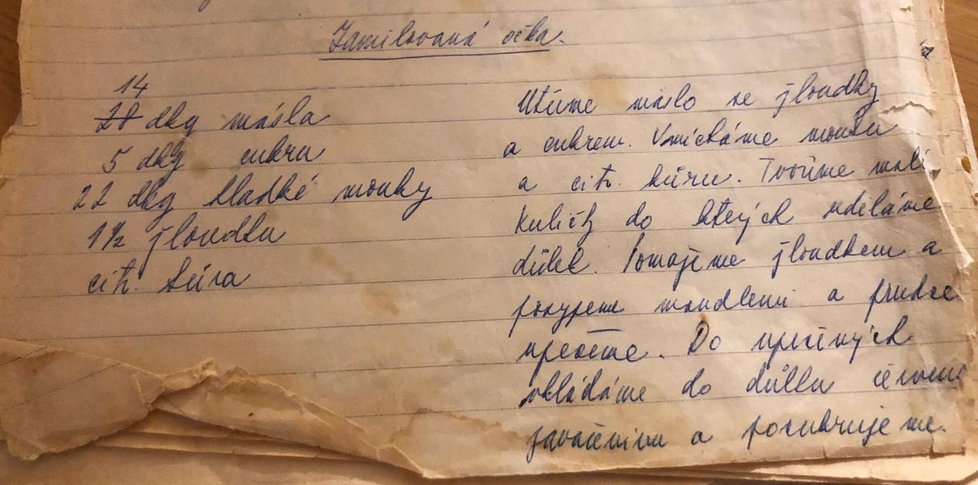 Zamilovaná očka.
14
28 dkg másla
5 dkg cukru
22 dkg hladké mouky
1 1/2 žloudku
cit. kúra
Utřeme máslo se žloudky
a cukrem. Vmícháme mouku
a cit. kúru. Tvoříme malé
kuličky do kterých uděláme
důlek. Pomažeme žloudkem a
posypeme mandlemi a prudce
upečeme. Do upečených
vkládáme do důlku červenou
zavařeninu a pocukrujeme.